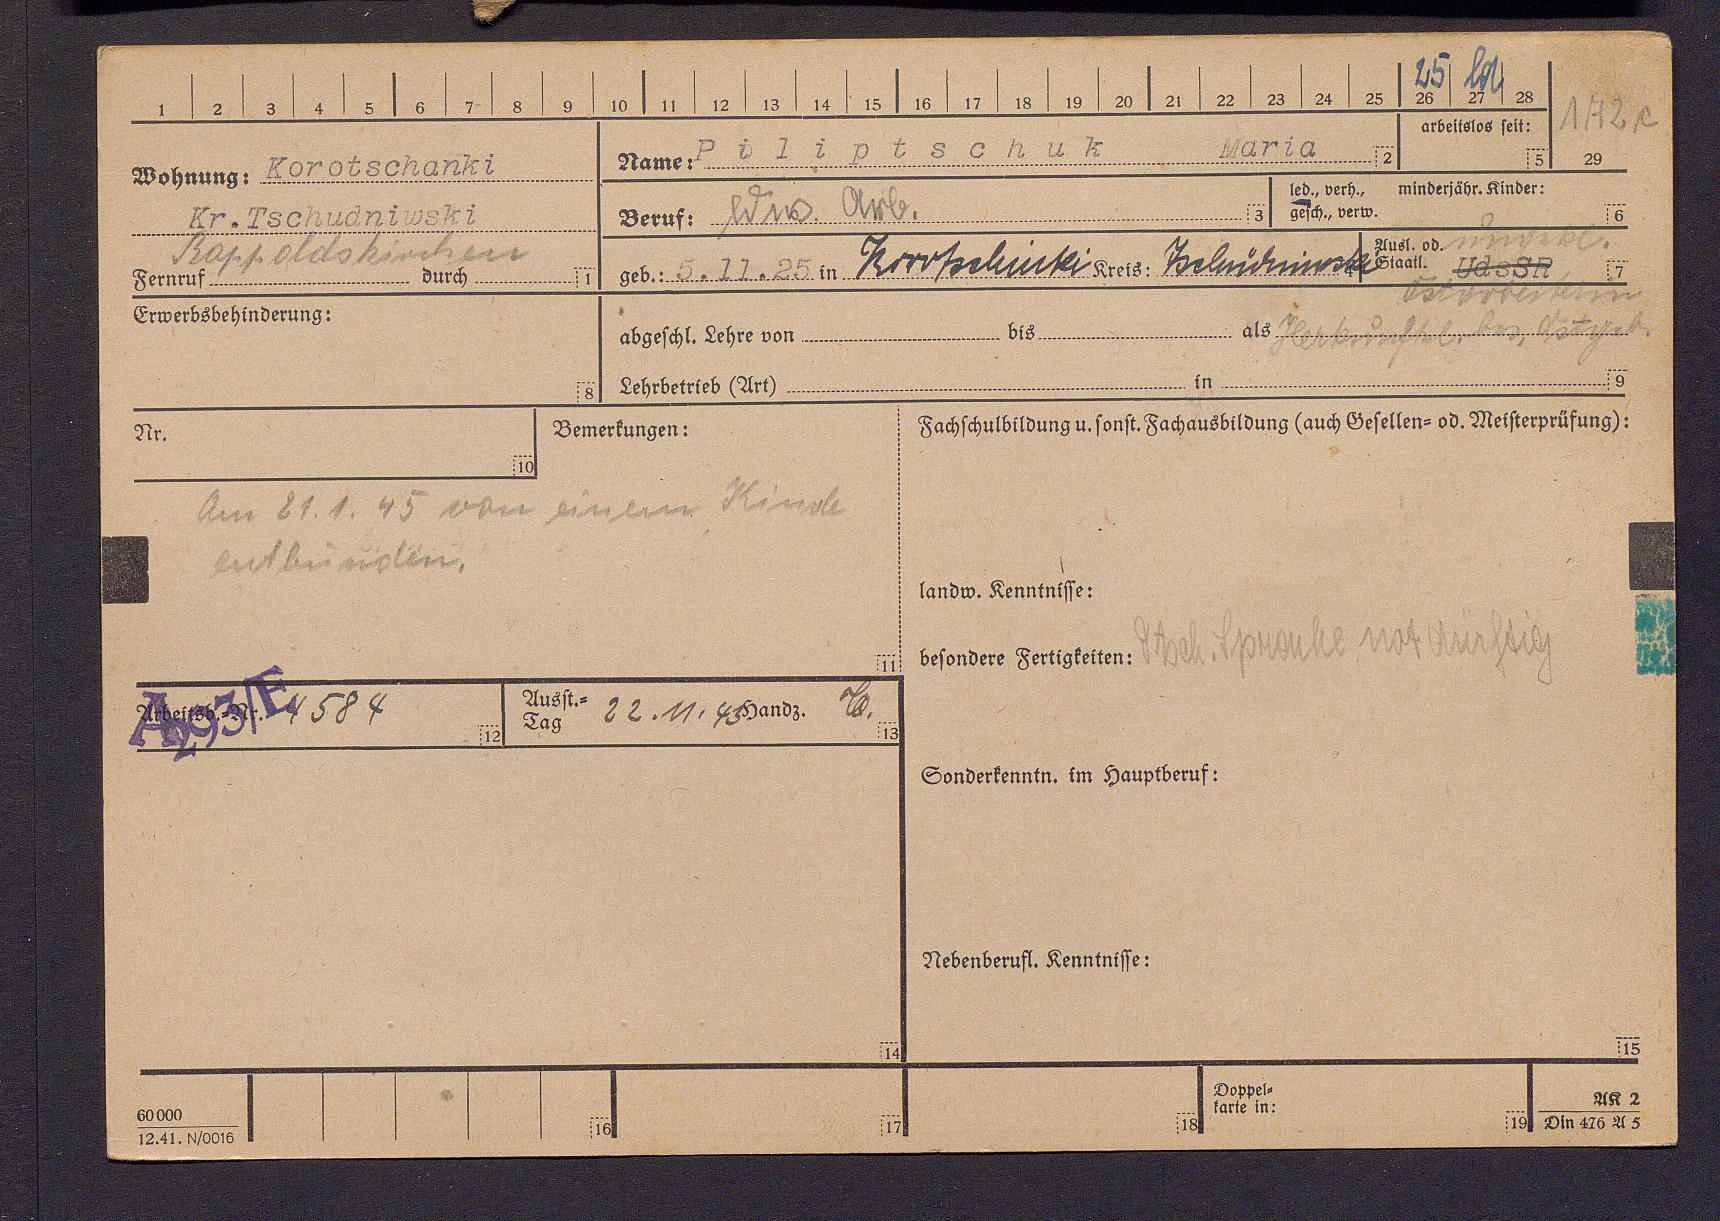 25 
1 2 3 4 5 6 7 8 9 10 11 12 13 14 15 16 17 18 19 20 21 22 23 24 25 26 27 28
172 c
arbeitslos seit:
5 29
Wohnung: Korotschanki
Name: Piliptschuk Maria 2
Kr. Tschudniwski
Beruf: ldw. Arb. 3
led., verh., minderjähr. Kinder:
gesch., verw. 6
Rappoldskirchen
Fernruf durch 1
geb.: 5.11.25 in Korotschinki Kreis: Tschudniwski 4
Ausl. od. ungekl.
Staatl. UdSSR 7
Ostarbeiterin
Erwerbsbehinderung:
8
abgeschl. Lehre von bis als Herkunft bes. Ostgeb.
Lehrbetrieb (Art) in 9
Nr.
10
Bemerkungen:
Am 21.1.45 von einem Kinde
entbunden.
11
Fachschulbildung u. sonst. Fachausbildung (auch Gesellen= od. Meisterprüfung):
landw. Kenntnisse:
besondere Fertigkeiten: Dtsch. Sprache notdürftig
Arbeitsb.=Nr. A 293/E 4584 12
Ausst.=
Tag 22.11.43 Handz. 13
Sonderkenntn. im Hauptberuf:
Nebenberufl. Kenntnisse:
14
15
60 000
12.41. N/0016
16 17 18
Doppel=
karte in: 19
AK 2
Din 476 A 5